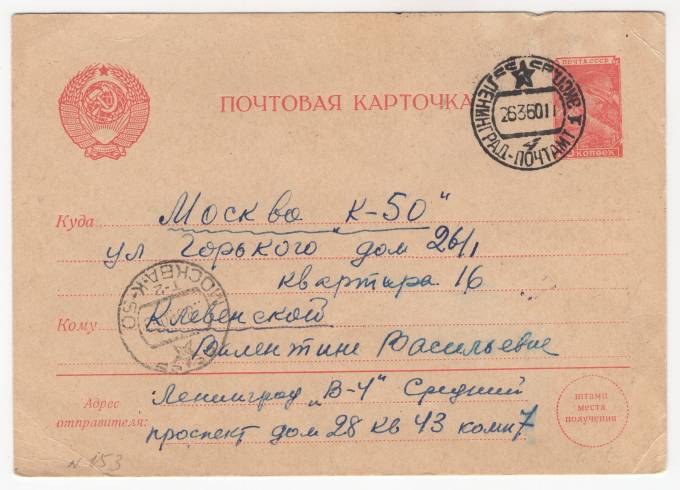 ПОЧТОВАЯ КАРТОЧКА
ПОЧТА СССР
КОПЕЕК
ЛЕНИНГРАД-ПОЧТАМТ
263601
Куда Москва "К-50"
ул Горького дом 26/1
квартира 16
МОСКВА-К-50
Кому Клевенской
Валентине Васильевне
Ленинград "В-4" Средний
Адрес отправителя: проспект дом 28 кв 43 комн 7
штамп
места
получения
N 153